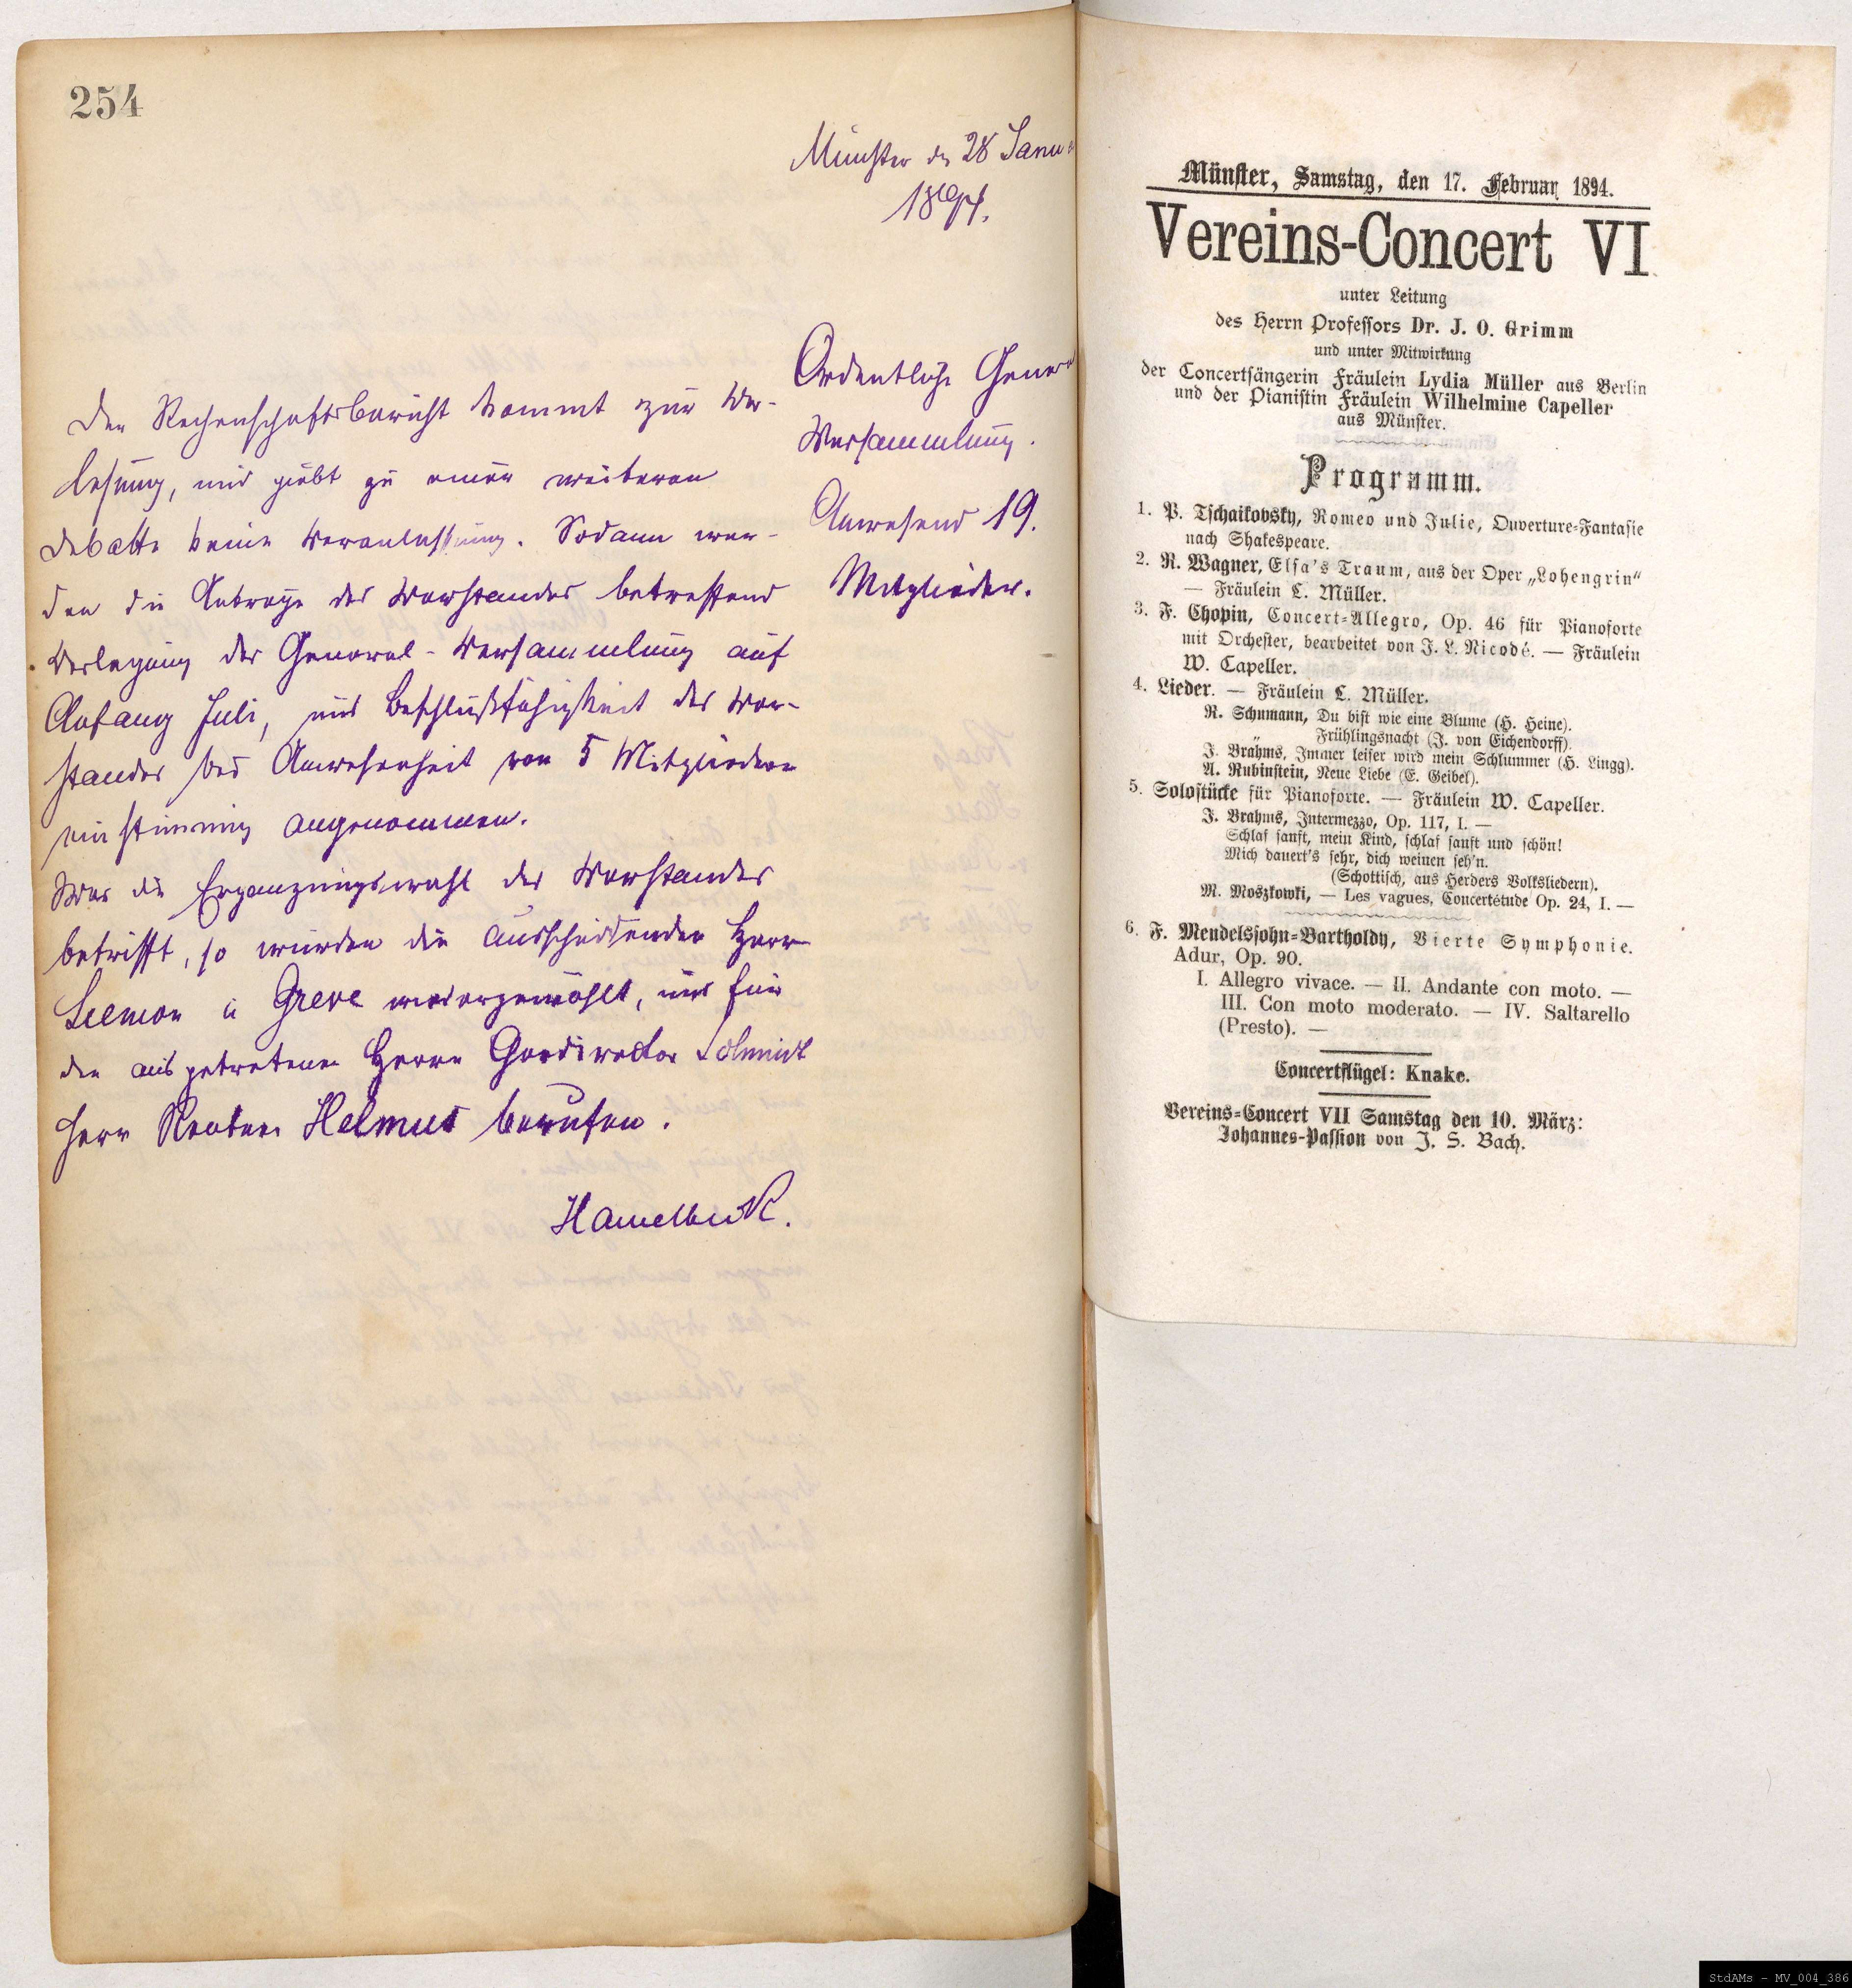 254
Münster den 28 Janu
1894.
Ordentliche Gener
Versammlung.
Anwesend 19.
Mitglieder.
Der Rechenschaftsbericht kommt zur Ver-
lesung, und giebt zu einer weiteren
Debatte keine Veranlassung. Sodann wer-
den die Antraege des Vorstandes betreffend
Verlegung der General-Versammlung auf
Anfang Juli, und Beschlußfähigkeit des Vor-
standes bei Anwesenheit von 5 Mitgliedern
einstimmig angenommen.
Was die Ergänzungswahl des Vorstandes
betrifft, so wurden die ausscheidenden Herrn
u Greve wiedergewählt, und für
den ausgetretenen Herrn Gasdirector Schmidt
Herr Rentner Helmus berufen.
Hamelbeck.
Münster, Samstag, den 17. Februar 1894.
Vereins-Concert VI
unter Leitung
des Herrn Professors Dr. J. O. Grimm
und unter Mitwirkung
der Concertsängerin Fräulein Lydia Müller aus Berlin
und der Pianistin Fräulein Wilhelmine Capeller
aus Münster.
Programm.
1. P. Tschaikovsky, Romeo und Julie, Ouverture-Fantasie
nach Shakespeare.
2. R. Wagner, Elsa's Traum, aus der Oper „Lohengrin"
— Fräulein L. Müller.
3. F. Chopin, Concert-Allegro, Op. 46 für Pianoforte
mit Orchester, bearbeitet von J. L. Nicodé. — Fräulein
W. Capeller.
4. Lieder. — Fräulein L. Müller.
R. Schumann, Du bist wie eine Blume (H. Heine).
Frühlingsnacht (J. von Eichendorff).
J. Brahms, Immer leiser wird mein Schlummer (H. Lingg).
A. Rubinstein, Neue Liebe (E. Geibel).
5. Solostücke für Pianoforte. — Fräulein W. Capeller.
J. Brahms, Intermezzo, Op. 117, I. —
Schlaf sanft, mein Kind, schlaf sanft und schön!
Mich dauert's sehr, dich weinen seh'n.
(Schottisch, aus Herders Volksliedern).
M. Moszkowki, — Les vagues, Concertétude Op. 24, I. —
6. F. Mendelssohn-Bartholdy, Vierte Symphonie.
Adur, Op. 90.
I. Allegro vivace. — II. Andante con moto. —
III. Con moto moderato. — IV. Saltarello
(Presto). —
Concertflügel: Knake.
Vereins-Concert VII Samstag den 10. März:
Johannes-Passion von J. S. Bach.
StdAMs - MV_004_386